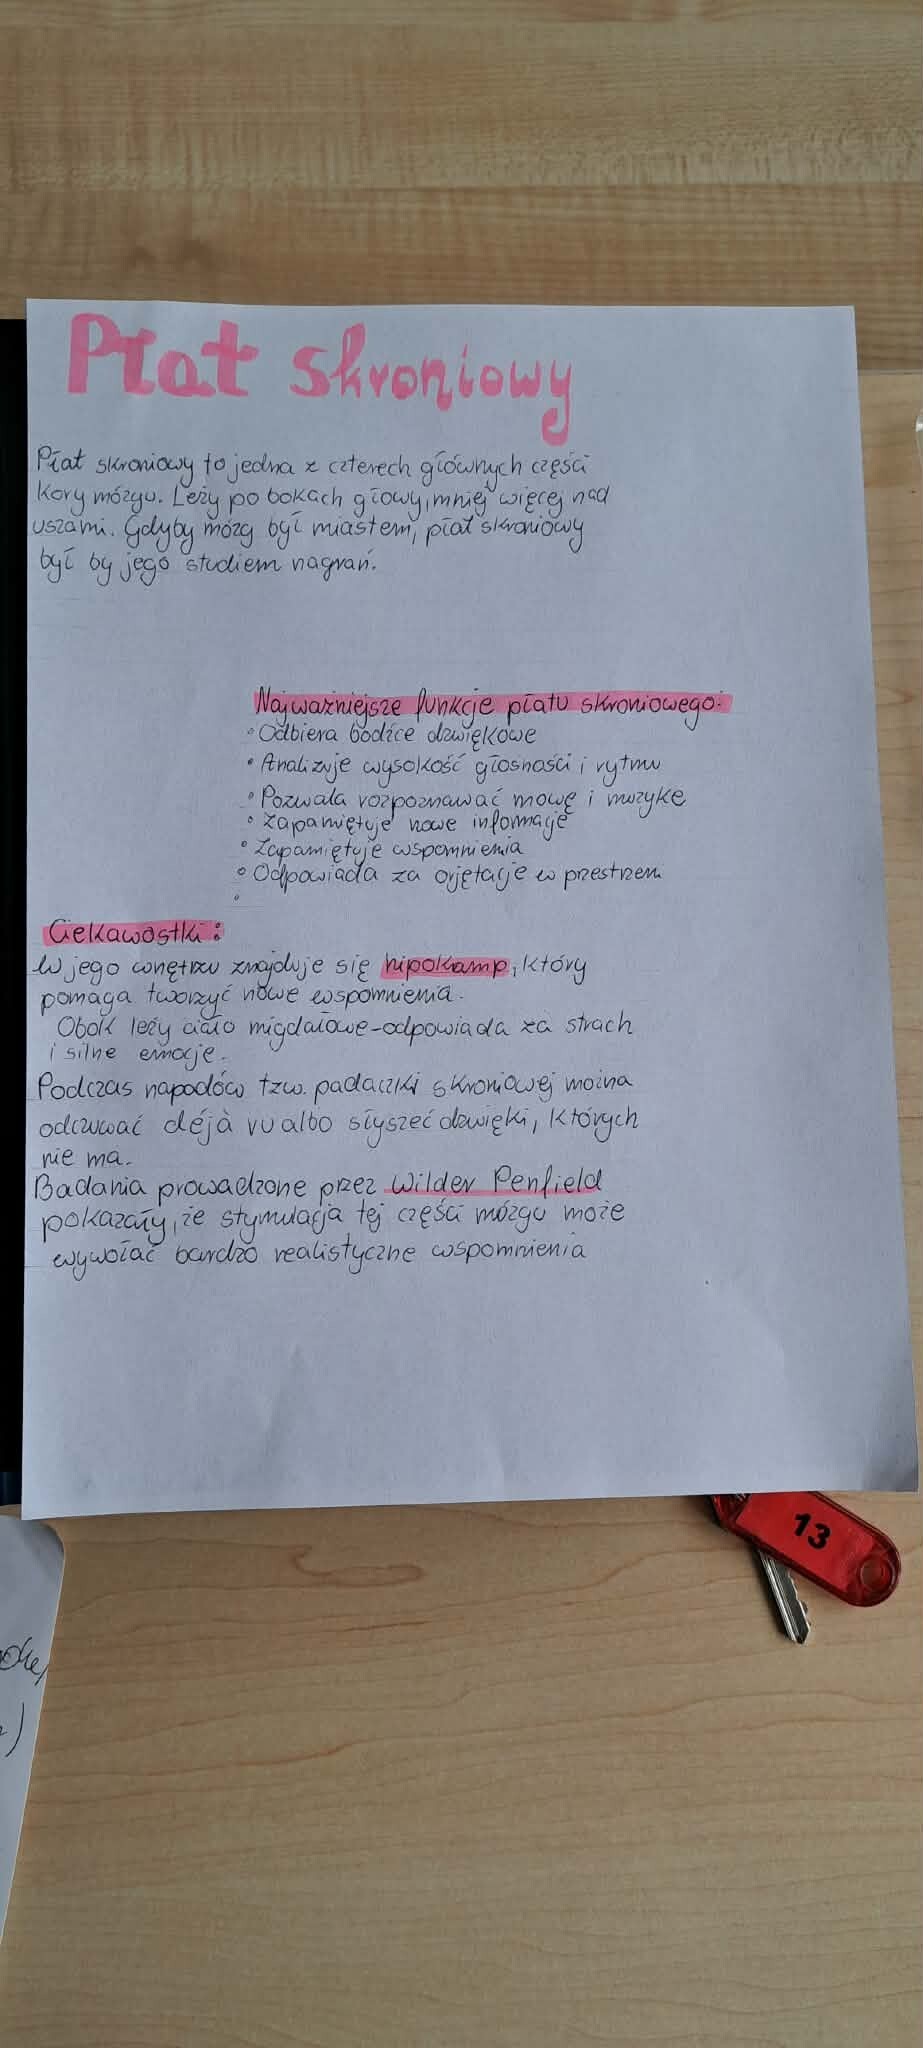 Płat skroniowy
Płat skroniowy to jedna z czterech głównych części
kory mózgu. Leży po bokach głowy, mniej więcej nad
uszami. Gdyby mózg był miastem, płat skroniowy
był by jego studiem nagrań.
Najważniejsze funkcje płatu skroniowego:
• Odbiera bodźce dzwiękowe
• Analizuje wysokość głosności i rytmu
• Pozwala rozpoznawać mowę i muzykę
• Zapamiętuje nowe informacje
• Zapamiętuje wspomnienia
• Odpowiada za orjętacje w przestrzeni
•
Ciekawostki:
W jego wnętrzu znajduje się hipokamp, który
pomaga tworzyć nowe wspomnienia.
Obok leży ciało migdałowe-odpowiada za strach
i silne emocje.
Podczas napadów tzw. padaczki skroniowej można
odczuwać déjà vu albo słyszeć dzwięki, których
nie ma.
Badania prowadzone przez Wilder Penfield
pokazały, że stymulacja tej części mózgu może
wywołać bardzo realistyczne wspomnienia
13